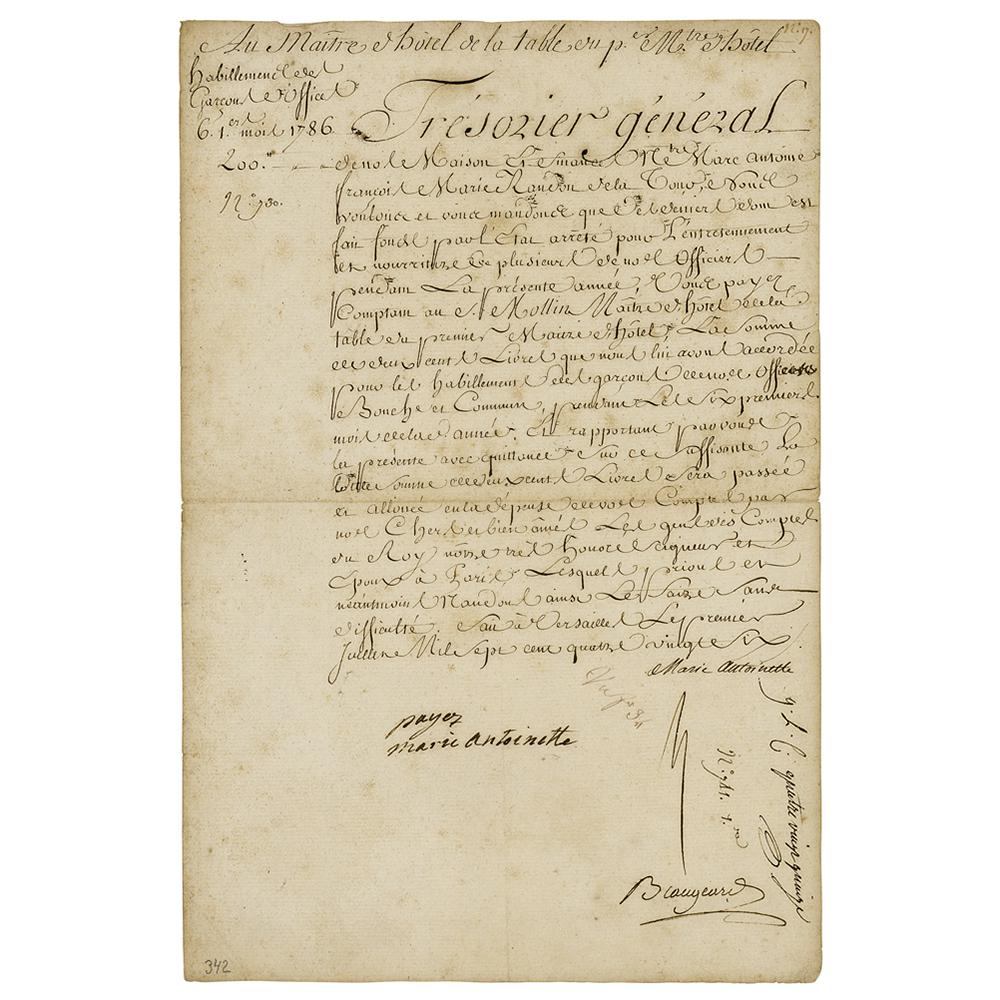 N.° 17.
Au Maître d'hôtel de la table du p.er M.tre d'hôtel
habillement des
Garçons d'office
6. 1.ers mois 1786.
200.
N.° 780.
Trésorier général
de nôtre Maison et finances M.tre Marc Antoine
françois Marie Randon de la Tour, Nous
voulons et vous mandons que des deniers dont est
fait fonds par l'Etat arrêté pour L'entretennement
et nourriture de plusieurs de nos Officiers
pendant La présente année, Vous payez
Comptant au S. Mollin Maître d'hôtel de la
table du premier Maître d'hôtel, La Somme
de deux cent Livres que nous lui avons accordée
pour les habillements des garçons de nos Offices
de Bouche et Commun, pendant Les Six premiers
mois de lad. année. Et rapportant par vous
la présente avec quittance Sur ce Suffisante La
dite somme de deux cent Livres Sera passée
et allouée en la dépense de vos Comptes par
nos Chers et bien âmés Les gens des Comptes
du Roy nôtre très Honoré Seigneur et
Epoux à Paris, Lesquels prions et
néantmoins Mandons ainsi Le faire Sans
difficulté. fait à Versailles Le premier
Juillet Mil Sept cent quatre vingt Six
Marie Antoinette
payez
marie antoinette
g. L. C. quatre vingt quinze
Beaugeard
342